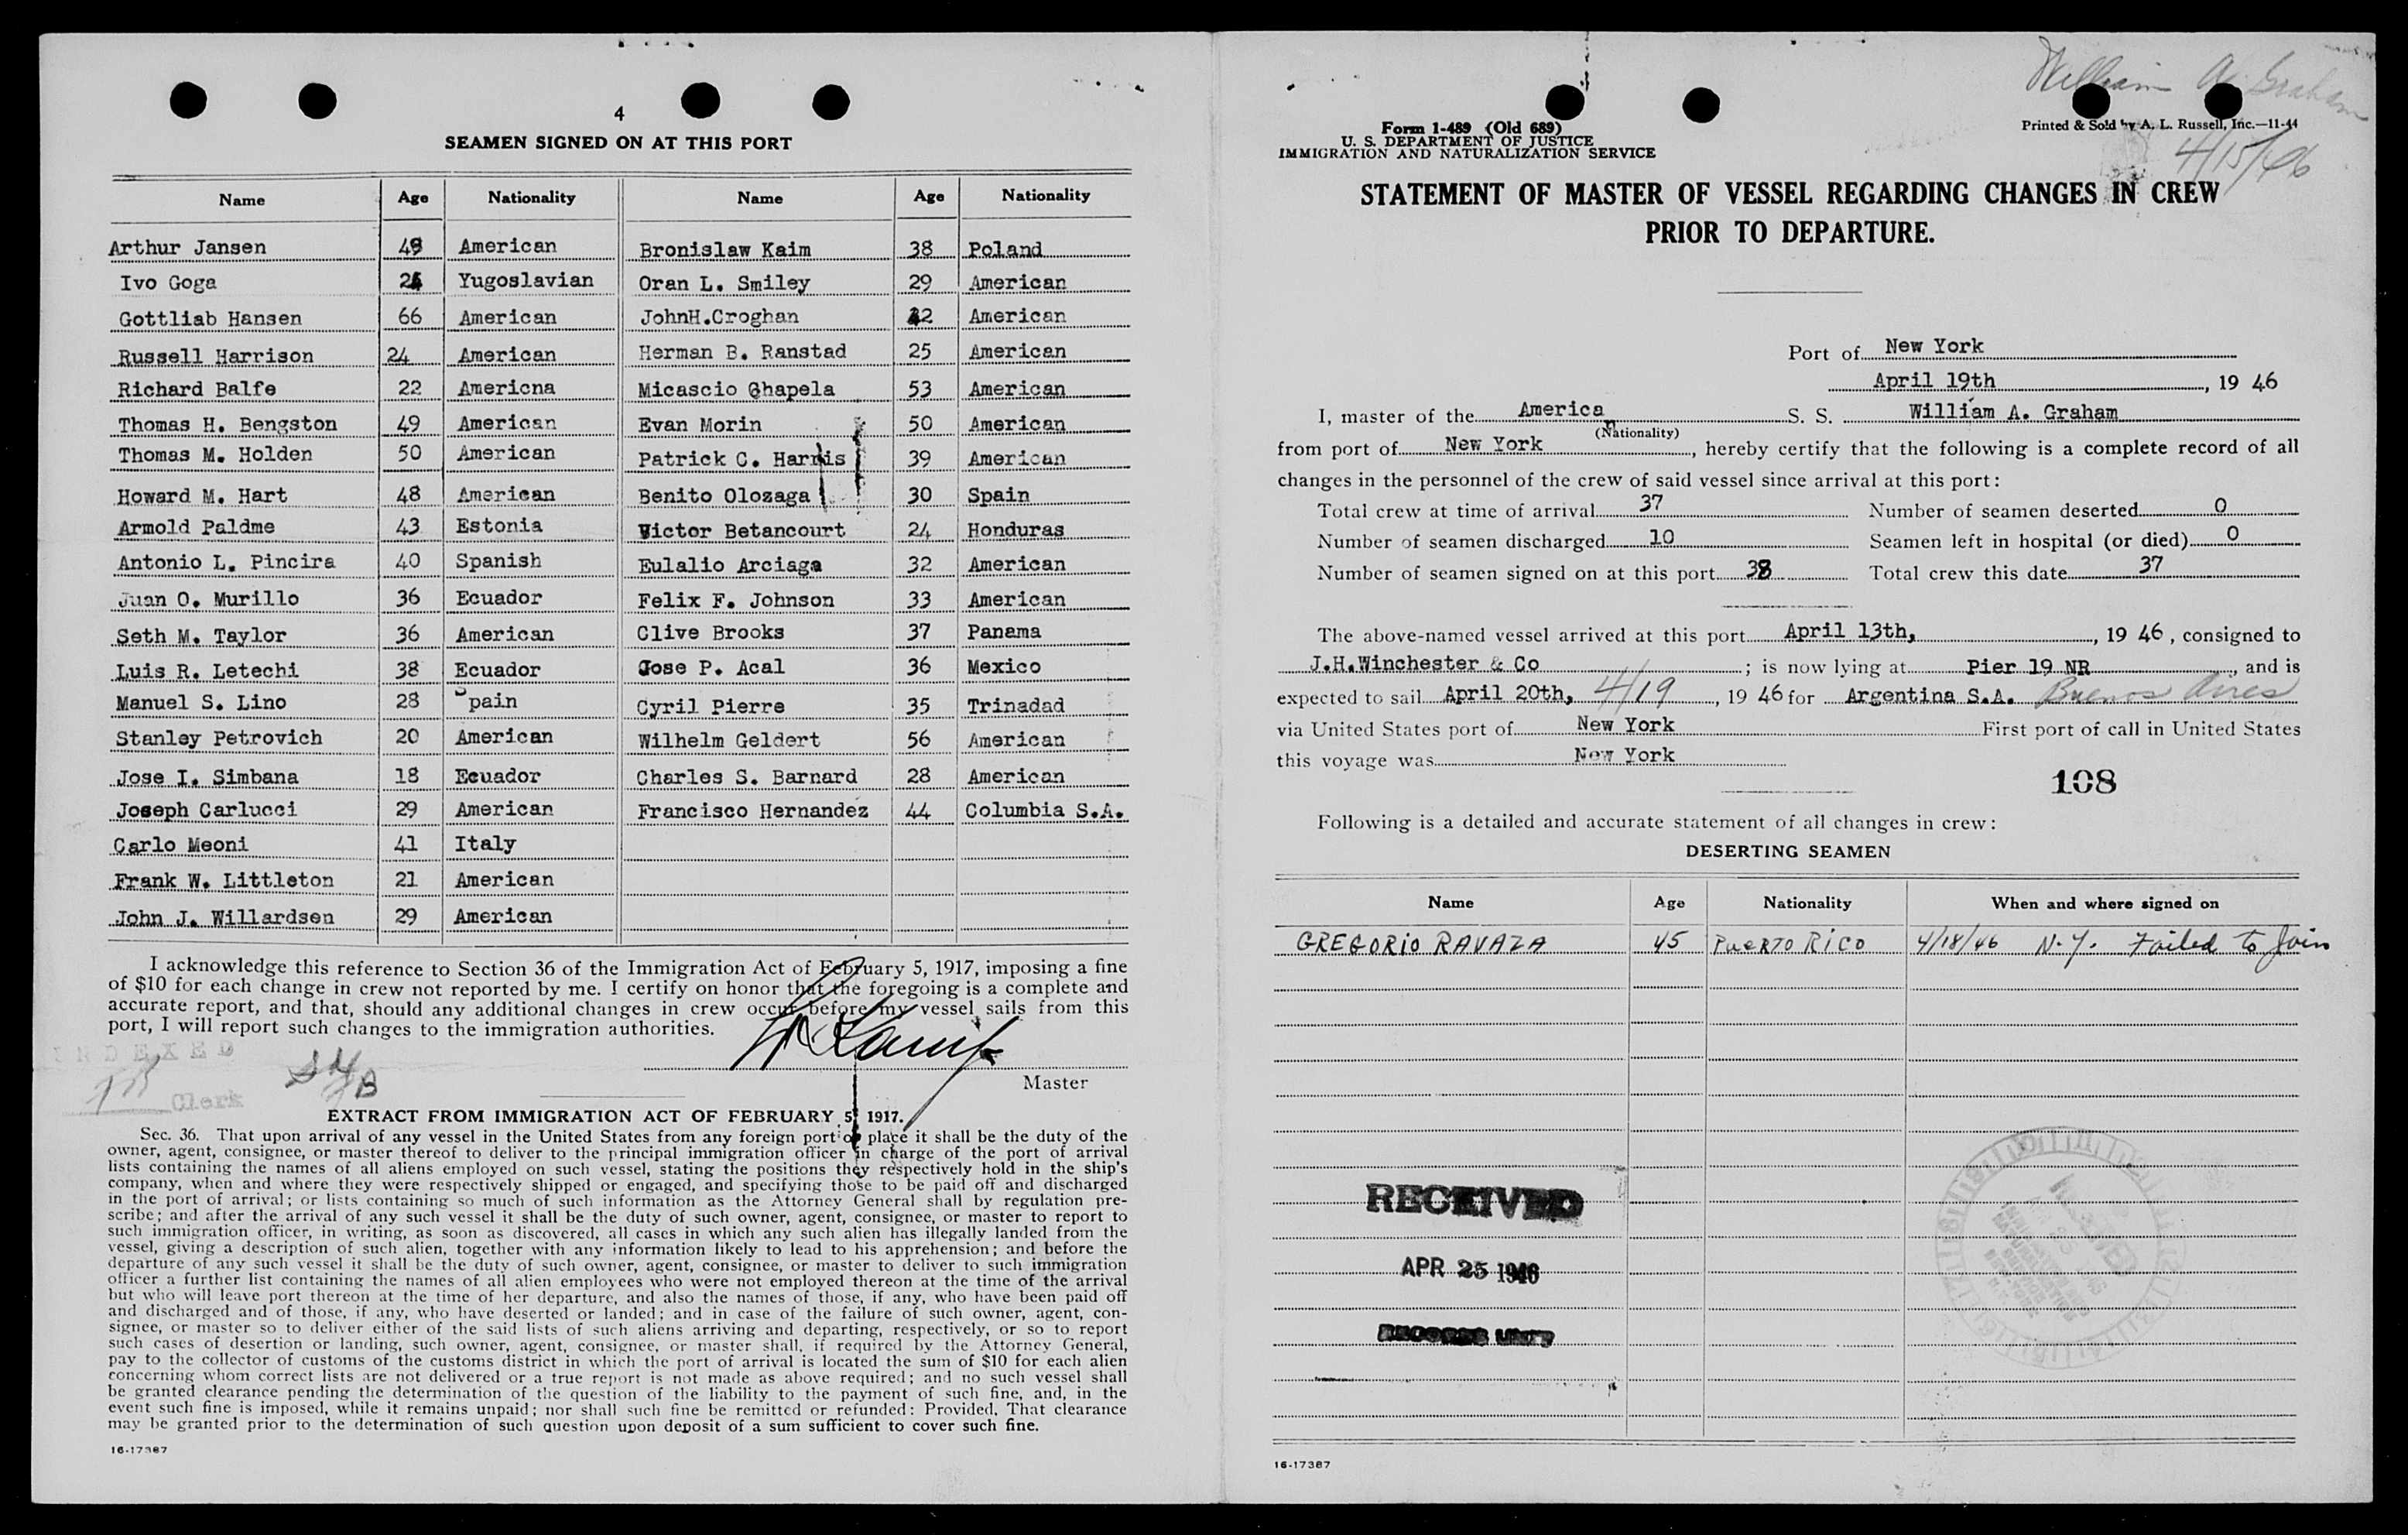 4
SEAMEN SIGNED ON AT THIS PORT
Name Age Nationality Name Age Nationality
Arthur Jansen 49 American Bronislaw Kaim 38 Poland
Ivo Goga Yugoslavian Oran L. Smiley 29 American
Gottliab Hansen 66 American JohnH.Croghan American
Russell Harrison 24 American Herman B. Ranstad 25 American
Richard Balfe 22 Americna Micascio Chapela 53 American
Thomas H. Bengston 49 American Evan Morin 50 American
Thomas M. Holden 50 American Patrick C. Harris 39 American
Howard M. Hart 48 American Benito Olozaga 30 Spain
Armold Paldme 43 Estonia Victor Betancourt 24 Honduras
Antonio L. Pincira 40 Spanish Eulalio Arciaga 32 American
Juan O. Murillo 36 Ecuador Felix F. Johnson 33 American
Seth M. Taylor 36 American Clive Brooks 37 Panama
Luis R. Letechi 38 Ecuador Jose P. Acal 36 Mexico
Manuel S. Lino 28 Spain Cyril Pierre 35 Trinadad
Stanley Petrovich 20 American Wilhelm Geldert 56 American
Jose I. Simbana 18 Ecuador Charles S. Barnard 28 American
Joseph Carlucci 29 American Francisco Hernandez 44 Columbia S.A.
Carlo Meoni 41 Italy
Frank W. Littleton 21 American
John J. Willardsen 29 American
I acknowledge this reference to Section 36 of the Immigration Act of February 5, 1917, imposing a fine
of $10 for each change in crew not reported by me. I certify on honor that the foregoing is a complete and
accurate report, and that, should any additional changes in crew occur before my vessel sails from this
port, I will report such changes to the immigration authorities.
INDEXED
Clerk
Master
EXTRACT FROM IMMIGRATION ACT OF FEBRUARY 5, 1917.
Sec. 36. That upon arrival of any vessel in the United States from any foreign port or place it shall be the duty of the
owner, agent, consignee, or master thereof to deliver to the principal immigration officer in charge of the port of arrival
lists containing the names of all aliens employed on such vessel, stating the positions they respectively hold in the ship's
company, when and where they were respectively shipped or engaged, and specifying those to be paid off and discharged
in the port of arrival; or lists containing so much of such information as the Attorney General shall by regulation pre-
scribe; and after the arrival of any such vessel it shall be the duty of such owner, agent, consignee, or master to report to
such immigration officer, in writing, as soon as discovered, all cases in which any such alien has illegally landed from the
vessel, giving a description of such alien, together with any information likely to lead to his apprehension; and before the
departure of any such vessel it shall be the duty of such owner, agent, consignee, or master to deliver to such immigration
officer a further list containing the names of all alien employees who were not employed thereon at the time of the arrival
but who will leave port thereon at the time of her departure, and also the names of those, if any, who have been paid off
and discharged and of those, if any, who have deserted or landed; and in case of the failure of such owner, agent, con-
signee, or master so to deliver either of the said lists of such aliens arriving and departing, respectively, or so to report
such cases of desertion or landing, such owner, agent, consignee, or master shall, if required by the Attorney General,
pay to the collector of customs of the customs district in which the port of arrival is located the sum of $10 for each alien
concerning whom correct lists are not delivered or a true report is not made as above required; and no such vessel shall
be granted clearance pending the determination of the question of the liability to the payment of such fine, and, in the
event such fine is imposed, while it remains unpaid; nor shall such fine be remitted or refunded: Provided, That clearance
may be granted prior to the determination of such question upon deposit of a sum sufficient to cover such fine.
16-17387
William A. Graham
Form I-489 (Old 689)
U. S. DEPARTMENT OF JUSTICE
IMMIGRATION AND NATURALIZATION SERVICE
Printed & Sold by A. L. Russell, Inc.—11-44
4/15/46
STATEMENT OF MASTER OF VESSEL REGARDING CHANGES IN CREW
PRIOR TO DEPARTURE.
Port of New York
April 19th, 19 46
I, master of the America S. S. William A. Graham
(Nationality)
from port of New York, hereby certify that the following is a complete record of all
changes in the personnel of the crew of said vessel since arrival at this port:
Total crew at time of arrival 37 Number of seamen deserted 0
Number of seamen discharged 10 Seamen left in hospital (or died) 0
Number of seamen signed on at this port 38 Total crew this date 37
The above-named vessel arrived at this port April 13th, , 19 46, consigned to
J.H.Winchester & Co ; is now lying at Pier 19 NR, and is
expected to sail April 20th, 4/19, 19 46 for Argentina S.A. Buenos Aires
via United States port of New York First port of call in United States
this voyage was New York
108
Following is a detailed and accurate statement of all changes in crew:
DESERTING SEAMEN
Name Age Nationality When and where signed on
GREGORIO RAVAZA 45 PUERTO RICO 4/18/46 N.Y. Failed to Join
RECEIVED
APR 25 1946
RECORDS UNIT
16-17387